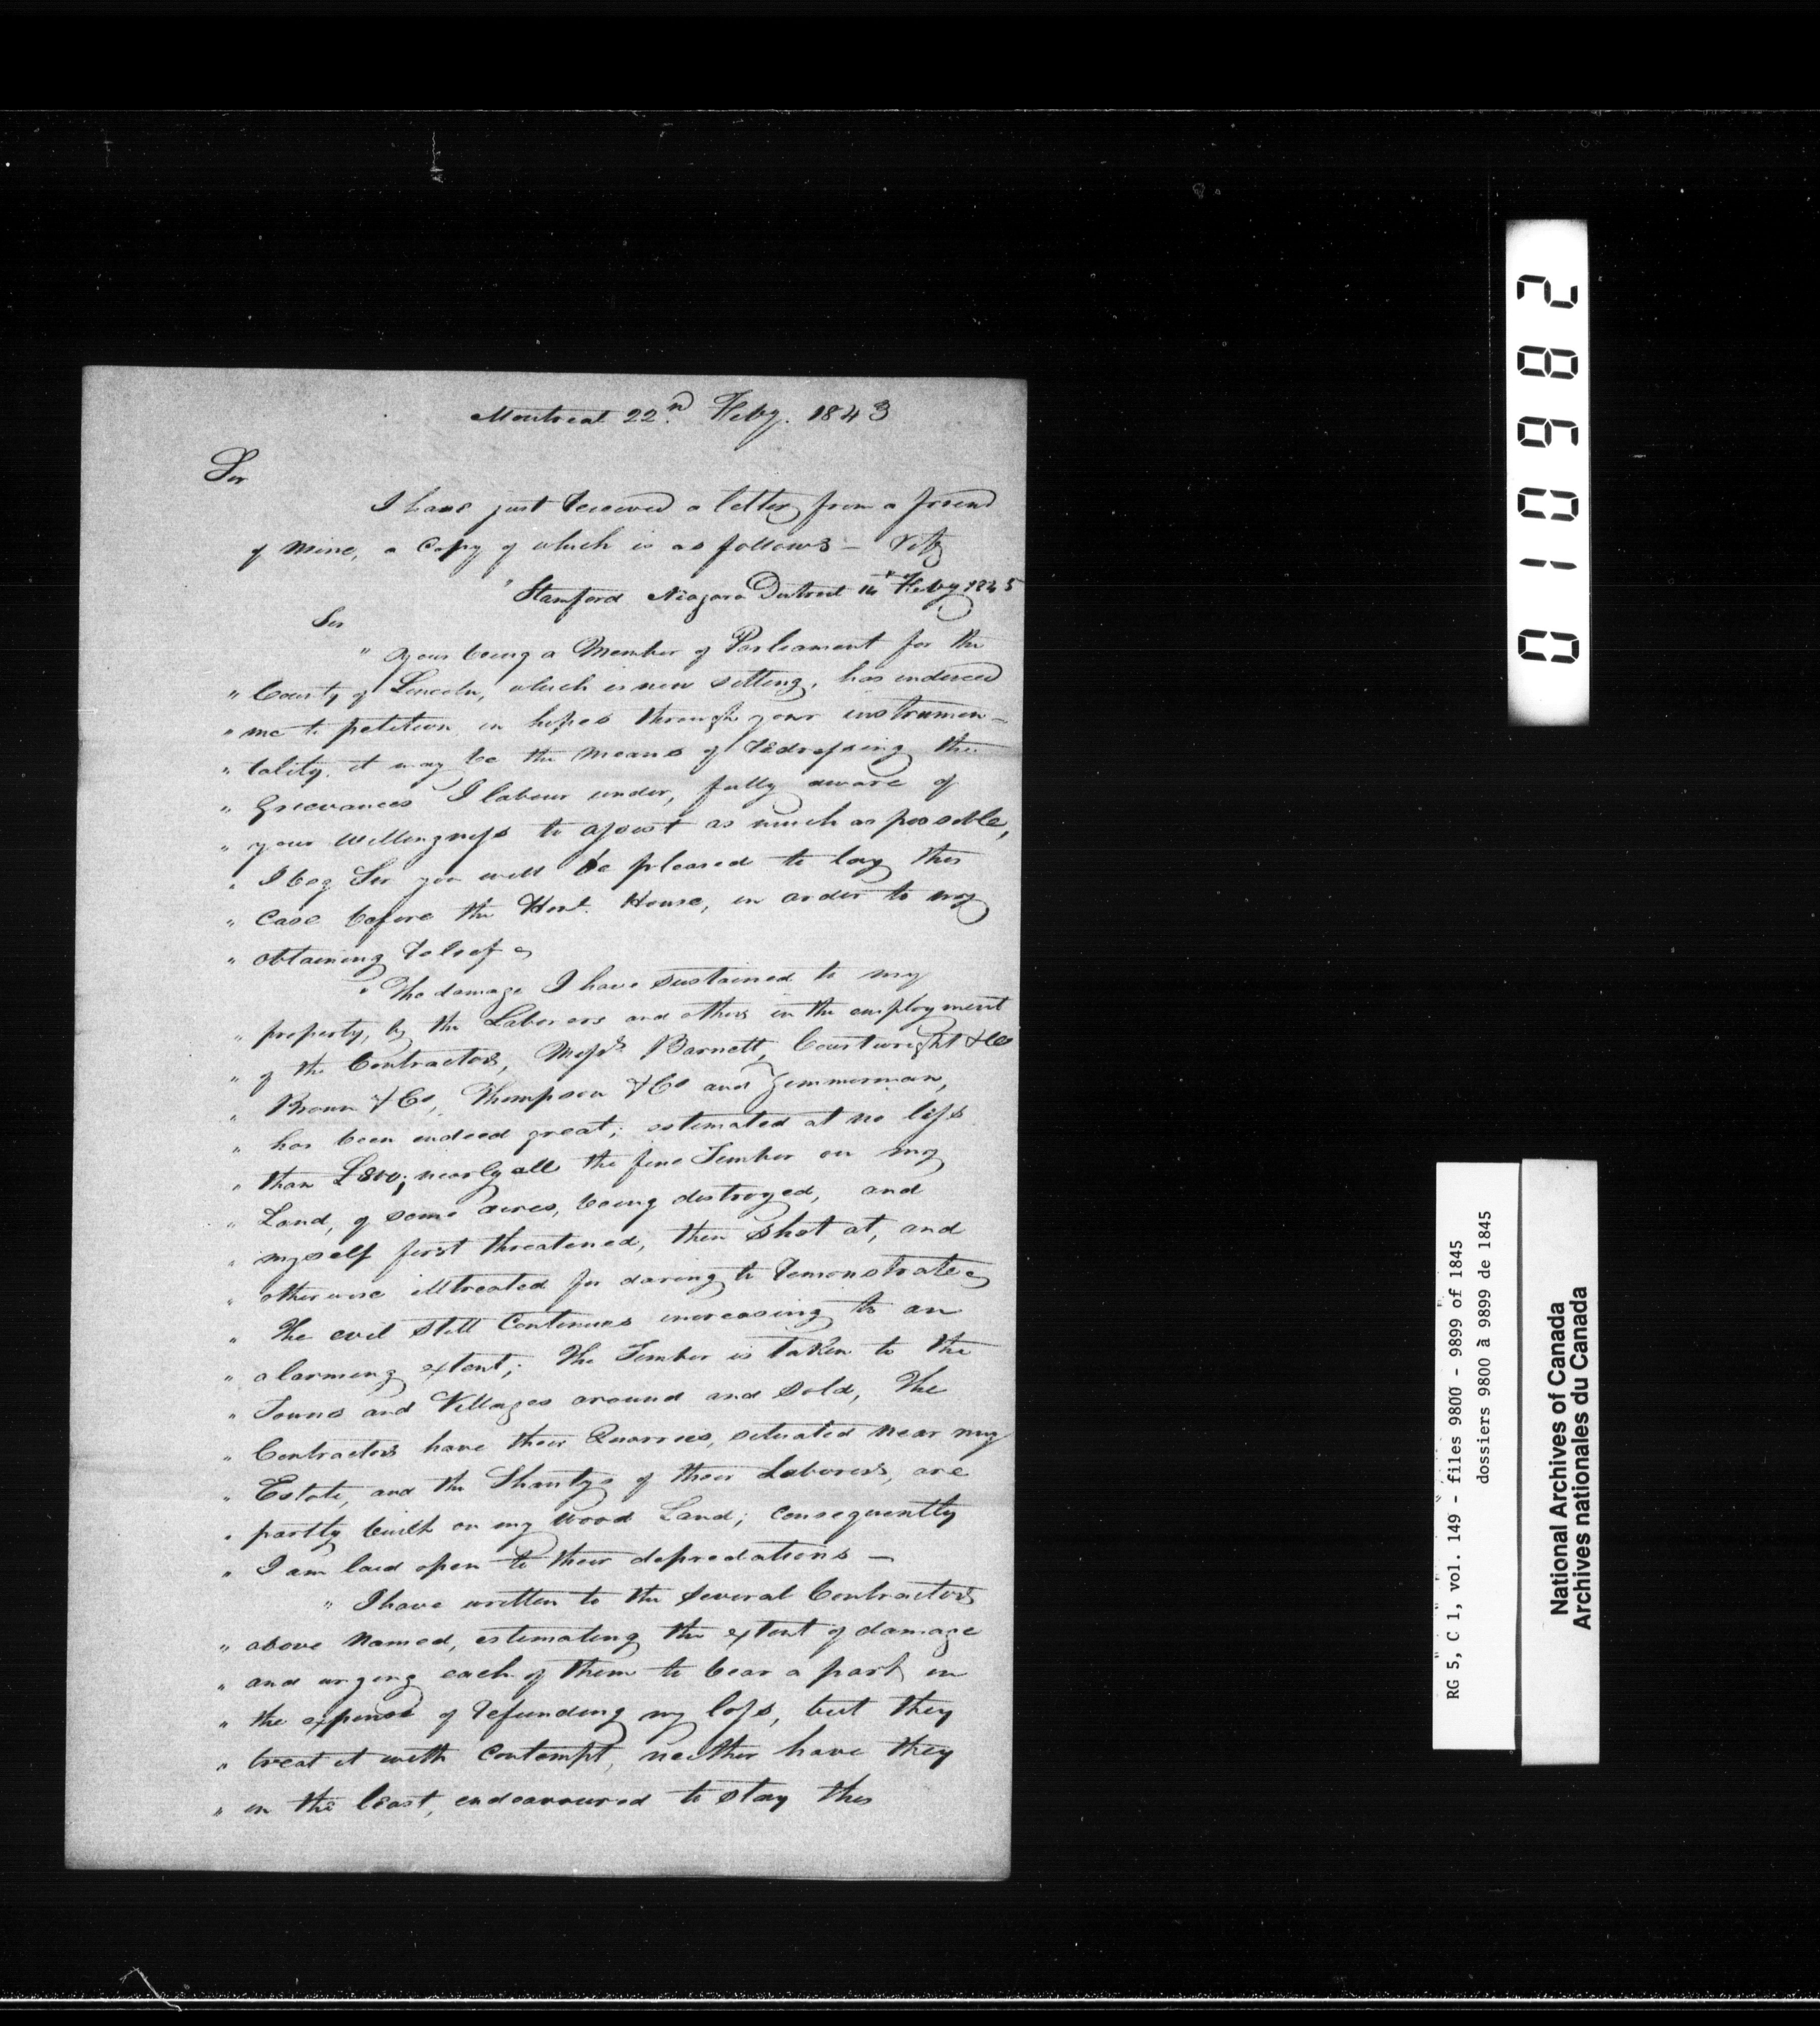 Montreal 22nd. Feby. 1843
Sir
I have just received a letter from a friend
of mine, a Copy of which is as follows — Vizt
" Stamford Niagara District 14th Feby 1845
Sir
" Your being a Member of Parliament for the
" County of Lincoln, which is now sitting, has induced
" me to petition in hopes through your instrumen-
" tality, it may be the means of redressing the
" Grievances I labour under, fully aware of
" your willingness to assist as much as possible,
" I beg Sir you will be pleased to lay this
" Case before the Honl. House, in order to my
" obtaining relief
" The damage I have sustained to my
" property, by the Laborers and others in the employment
" of the Contractors, Messrs. Barnett, Courtwright & Co
" Brown & Co, Thompson & Co and Zimmerman,
" has been indeed great; estimated at no less
" than £800; nearly all the fine Timber on my
" Land, of some acres, being destroyed, and
" myself first threatened, then Shot at, and
" otherwise illtreated for daring to remonstrate
" The evil still Continues increasing to an
" alarming extent; The Timber is taken to the
" Towns and Villages around and Sold, The
" Contractors have their Quarries, situated near my
" Estate, and the Shantys of their Laborers, are
" partly built on my Wood Land; consequently
" I am laid open to their depredations —
" I have written to the several Contractors
" above named, estimating the extent of damage
" and urging each of them to bear a part in
" the expense of refunding my loss, but they
" treat it with Contempt, neither have they
" in the least, endeavoured to stay this
010982
RG 5, C 1, vol. 149 - files 9800 - 9899 of 1845
dossiers 9800 à 9899 de 1845
National Archives of Canada
Archives nationales du Canada